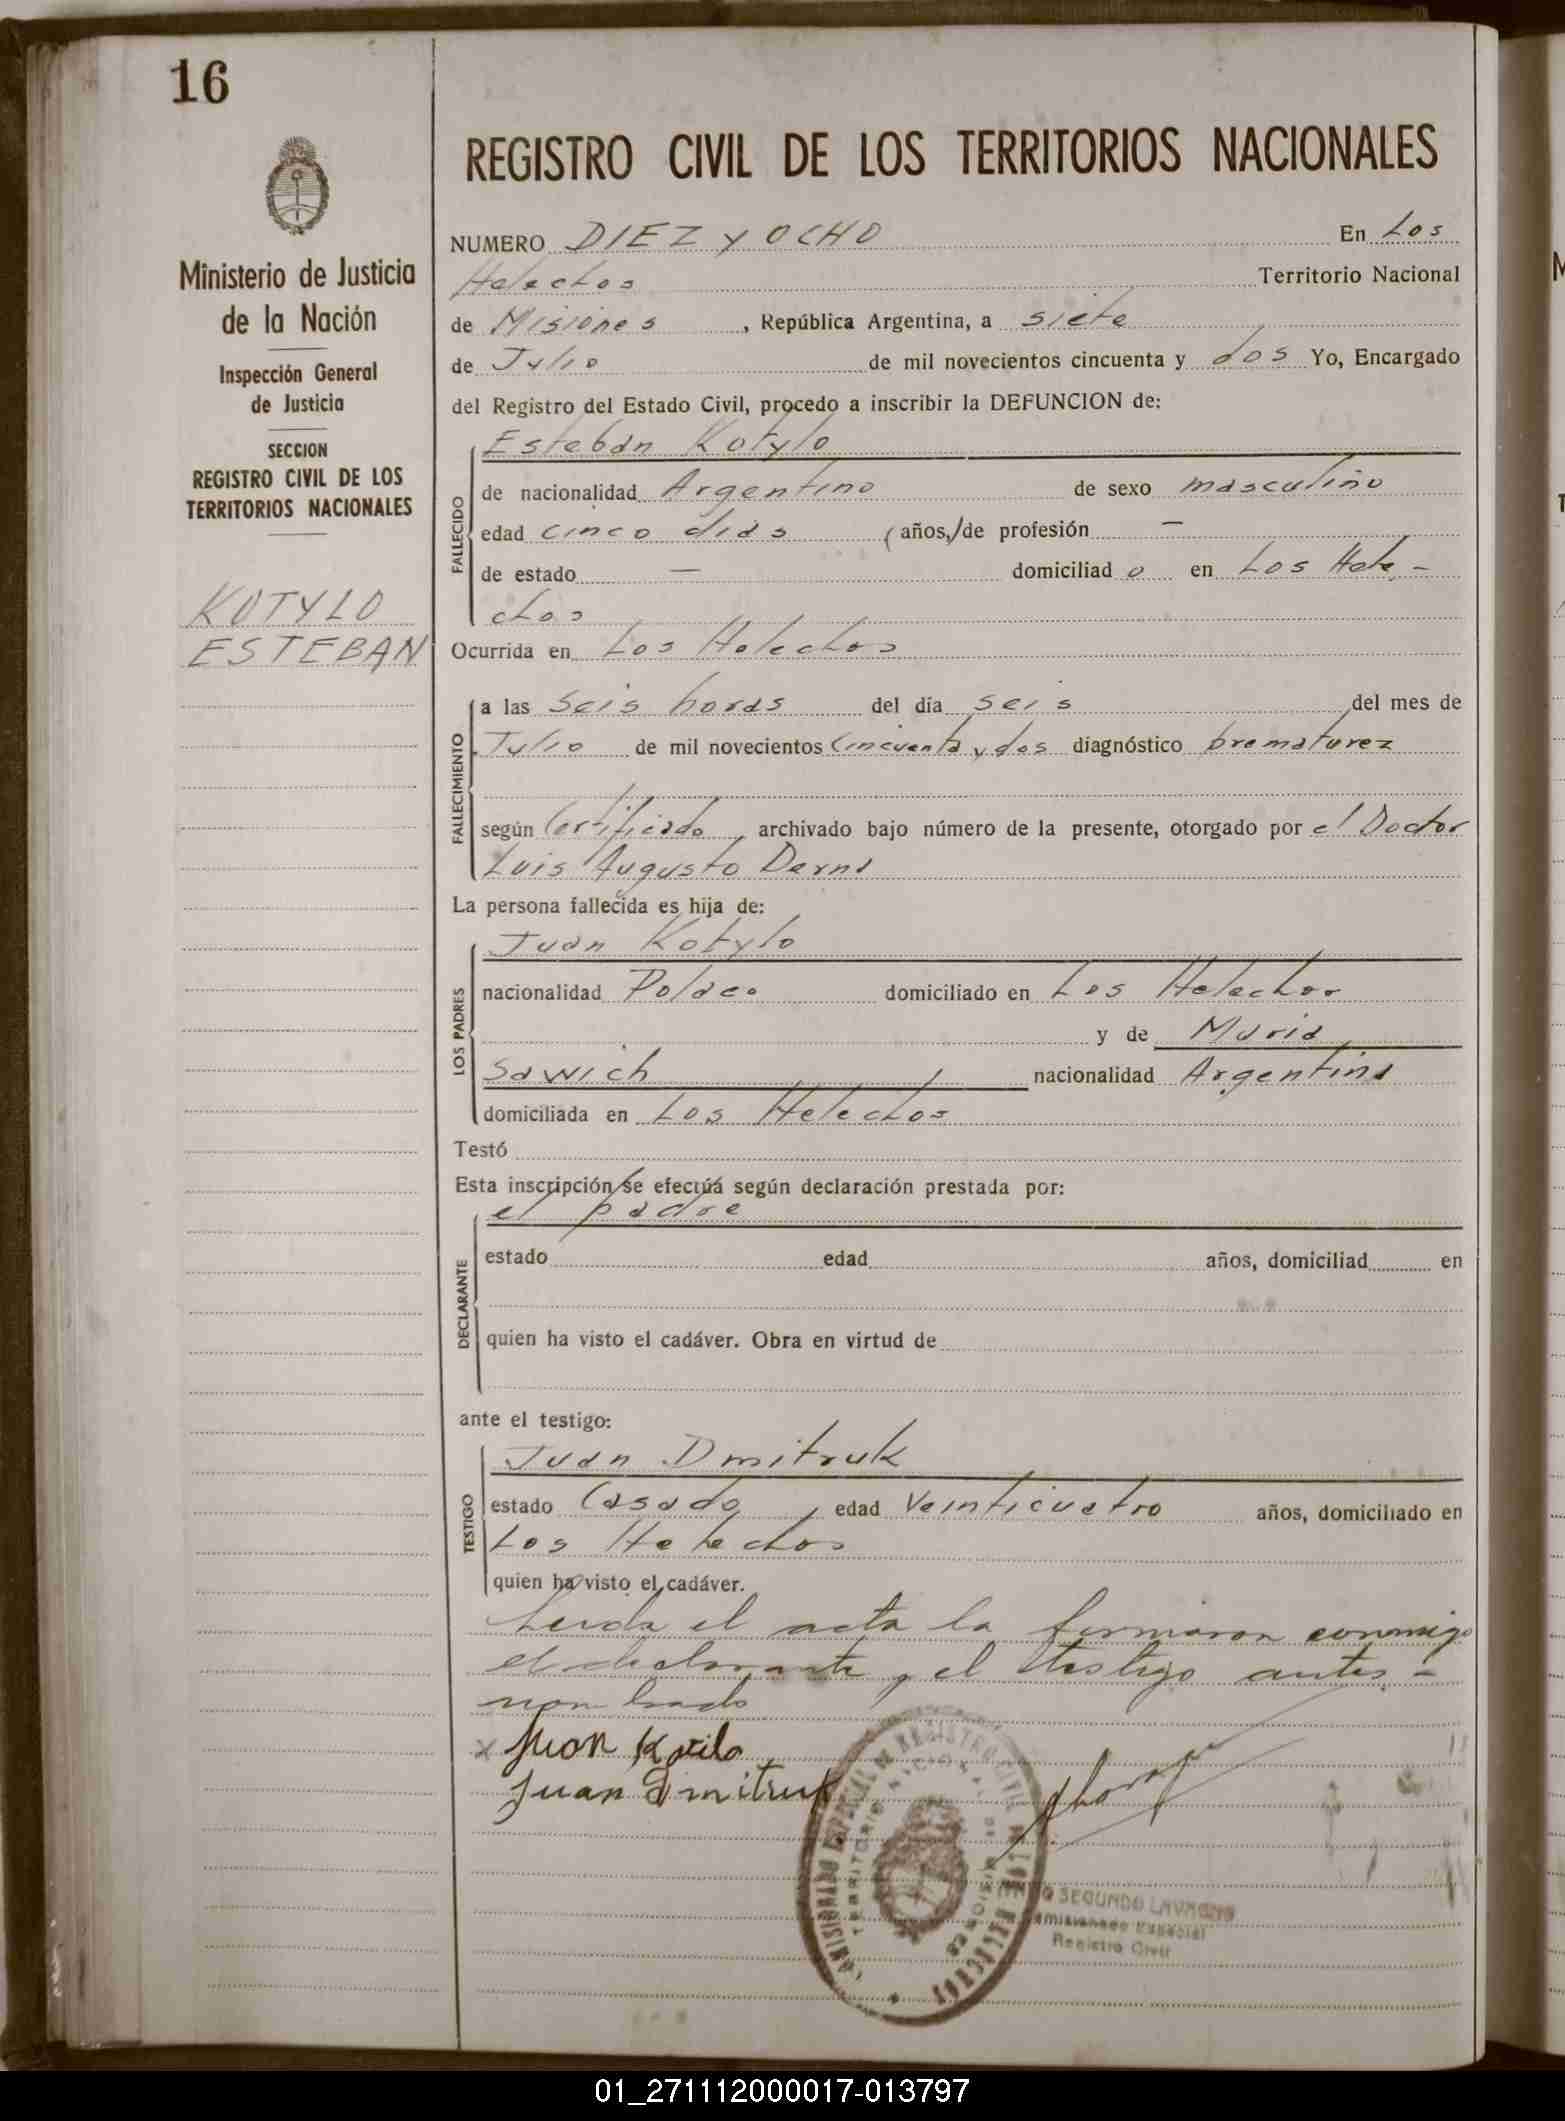 16
Ministerio de Justicia
de la Nación
Inspección General
de Justicia
SECCION
REGISTRO CIVIL DE LOS
TERRITORIOS NACIONALES
KOTYLO
ESTEBAN
REGISTRO CIVIL DE LOS TERRITORIOS NACIONALES
NUMERO DIEZ Y OCHO En Los
Helechos Territorio Nacional
de Misiones, República Argentina, a siete
de Julio de mil novecientos cincuenta y dos Yo, Encargado
del Registro del Estado Civil, procedo a inscribir la DEFUNCION de:
FALLECIDO
Esteban Kotylo
de nacionalidad Argentino de sexo masculino
edad cinco dias (años,/de profesión —
de estado — domiciliado en Los Hele-
chos
Ocurrida en Los Helechos
FALLECIMIENTO
a las seis horas del día seis del mes de
Julio de mil novecientos Cincuenta y dos diagnóstico prematurez
según Certificado, archivado bajo número de la presente, otorgado por el Doctor
Luis Augusto Derna
La persona fallecida es hija de:
LOS PADRES
Juan Kotylo
nacionalidad Polaco domiciliado en Los Helechos
y de Maria
Sawich nacionalidad Argentina
domiciliada en Los Helechos
Testó
Esta inscripción se efectúa según declaración prestada por:
DECLARANTE
el padre
estado edad años, domiciliad en
quien ha visto el cadáver. Obra en virtud de
ante el testigo:
TESTIGO
Juan Dmitruk
estado Casado, edad Veinticuatro años, domiciliado en
Los Helechos
quien ha visto el cadáver.
Leida el acta la firmaron conmigo
el declarante y el testigo antes-
nombrado
x Juan Kotilo
Juan Dmitruk
COMISIONADO ESPECIAL DE REGISTRO CIVIL
TERRITORIO NACIONAL DE MISIONES
LOS HELECHOS
SEGUNDO
Comisionado Especial
Registro Civil
01_271112000017-013797